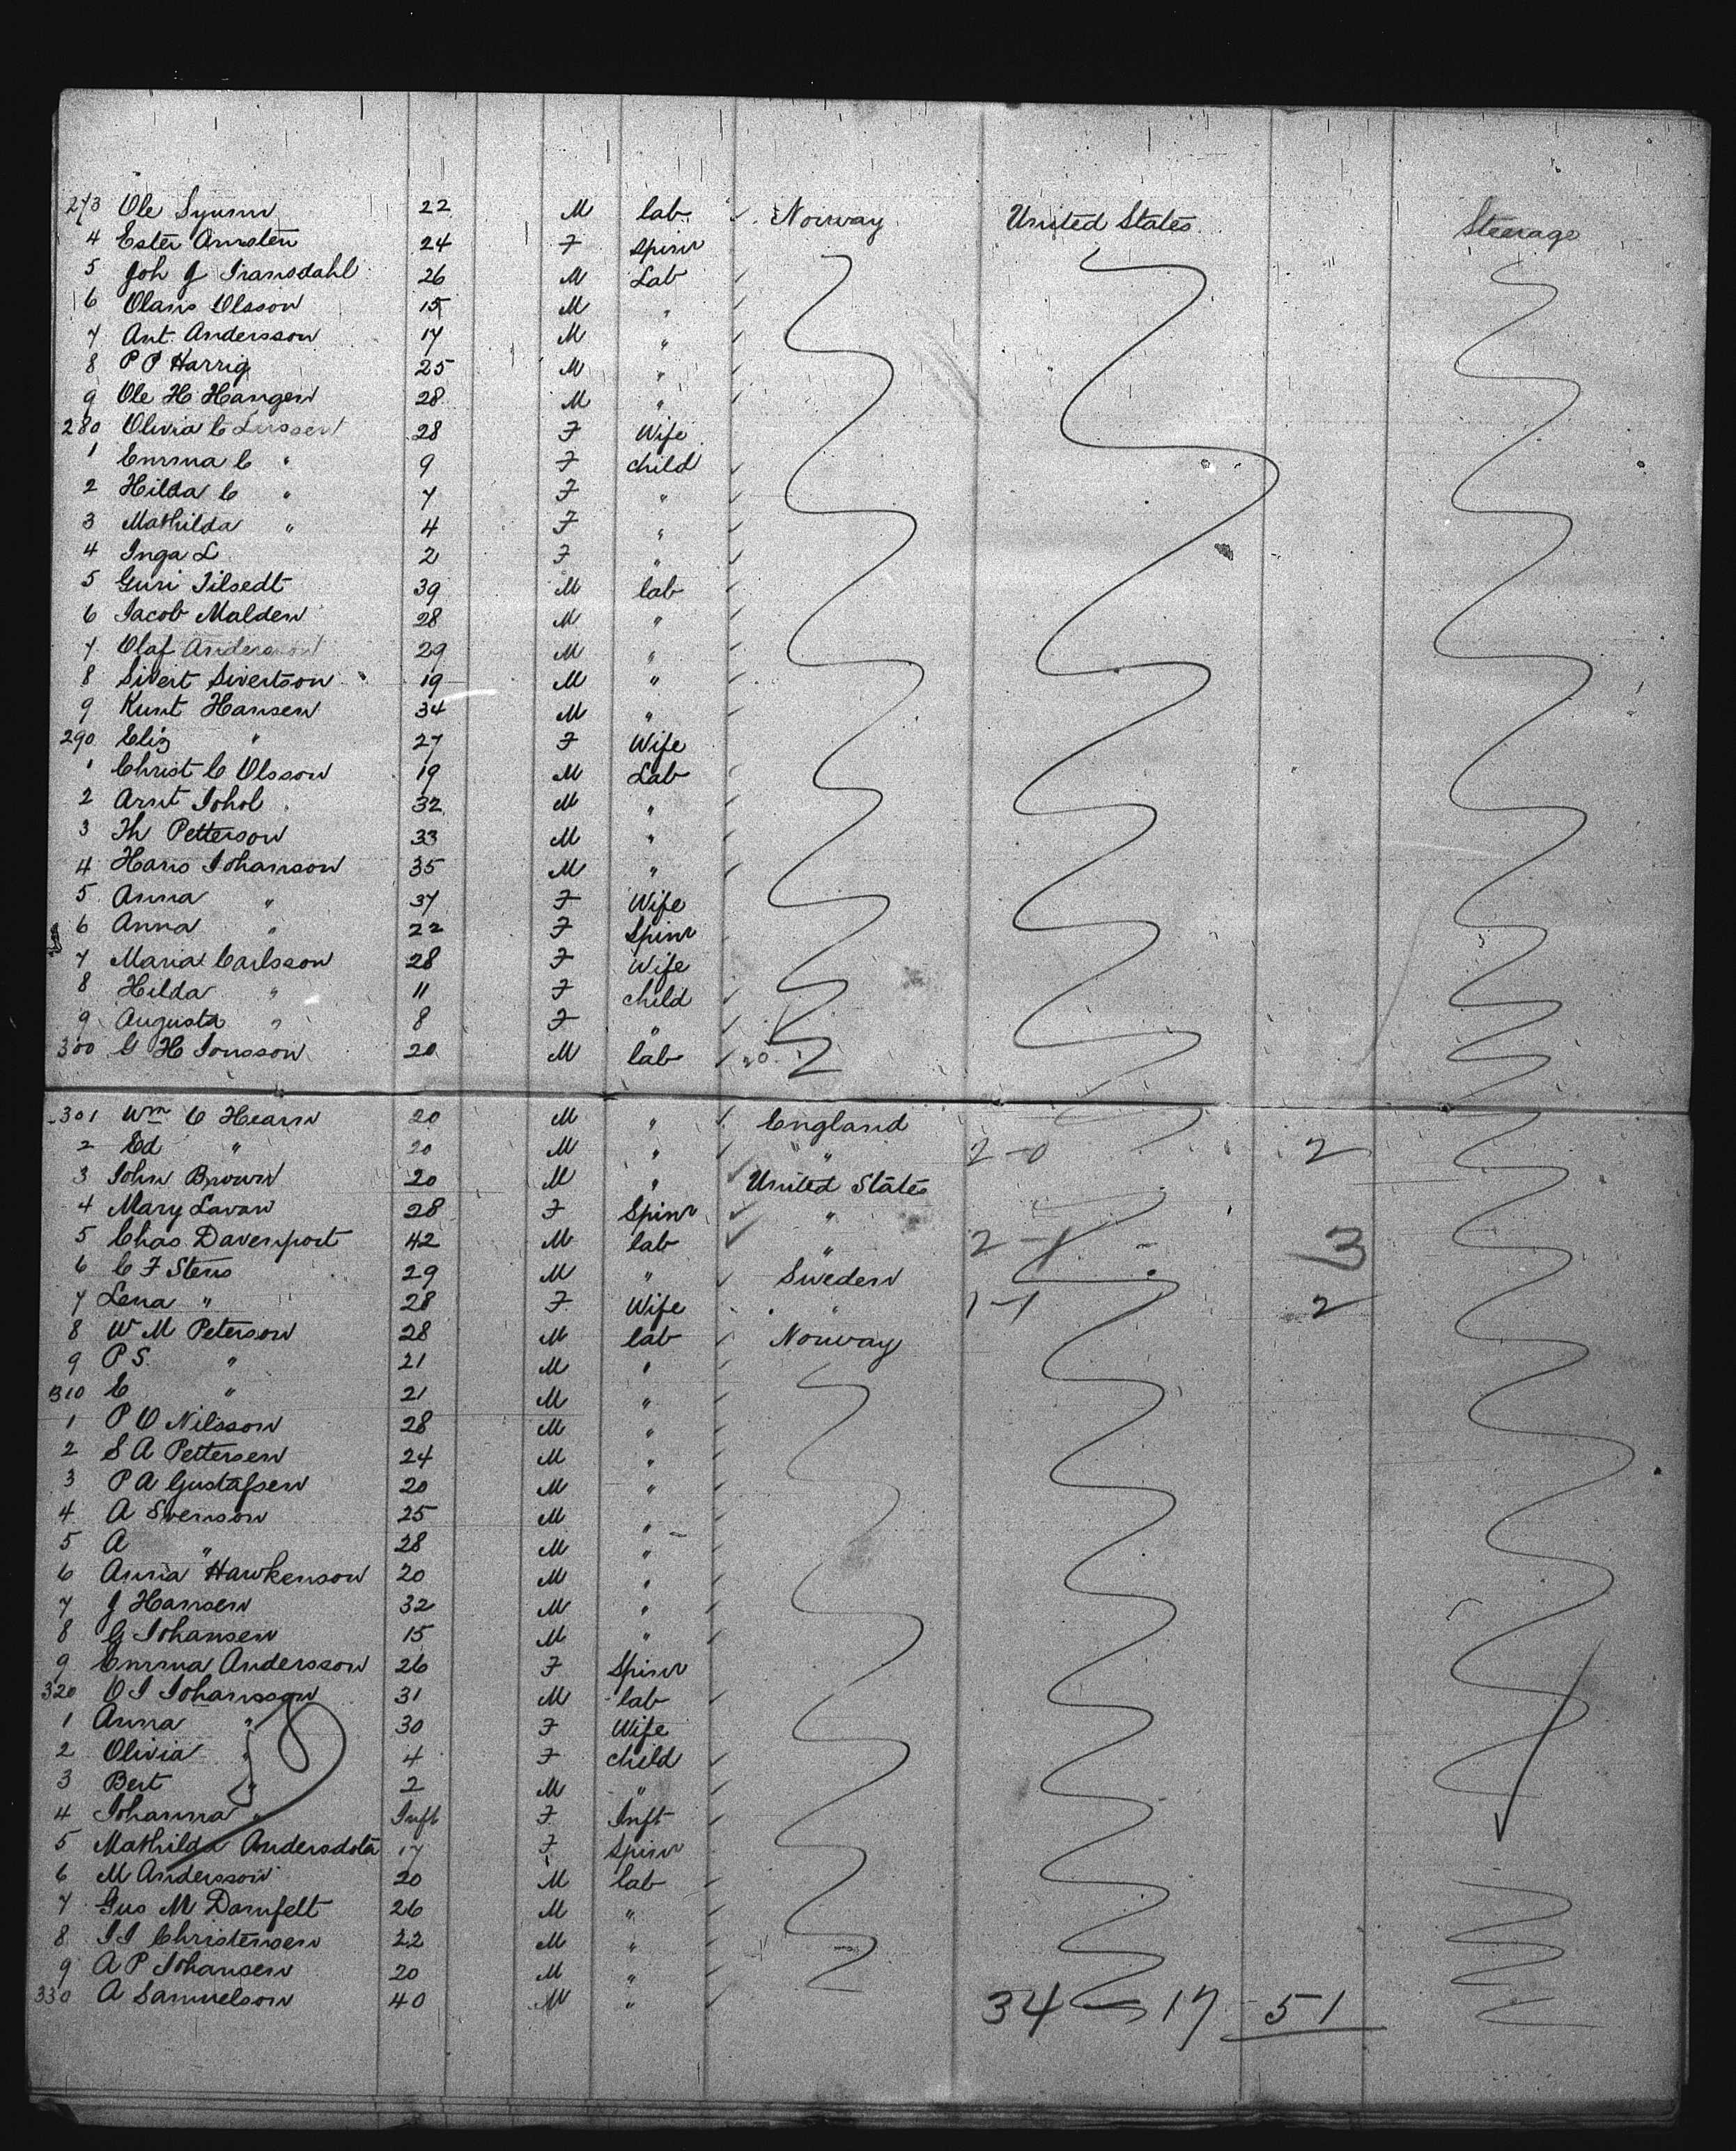 273 Ole 22 M lab Norway United States Steerage
4 Ester Amsten 24 F Spinr
5 Joh J Transdahl 26 M Lab
6 Olans Olsson 15 M "
7 Ant. Andersson 17 M "
8 P P Harrig 25 M "
9 Ole H. Haugen 28 M "
280 Olivia C Larssen 28 F Wife
1 Emma C " 9 F child
2 Hilda C " 7 F "
3 Mathilda " 4 F "
4 Inga L 2 F "
5 Guri Tilsedt 39 M lab
6 Jacob Malden 28 M "
7 Olaf Anderson 29 M "
8 Sivert Sivertson 19 M "
9 Kunt Hansen 34 M "
290 Eliz " 27 F Wife
1 Christ C Olsson 19 M Lab
2 Arnt Johol 32 M "
3 Th Petterson 33 M "
4 Hans Johanson 35 M "
5 Anna " 37 F Wife
6 Anna " 22 F Spinr
7 Maria Carlsson 28 F Wife
8 Hilda " 11 F child
9 Augusta " 8 F "
300 G H Jonsson 20 M lab 20
301 Wm C Hearn 20 M " England
2 Ed " 20 M " " 2-0 2
3 John Brown 20 M " United States
4 Mary Lavan 28 F Spinr "
5 Chas Davenport 42 M lab " 2-1 3
6 C F Stens 29 M " Sweden
7 Lena " 28 F Wife " 1-1 2
8 W M Peterson 28 M lab Norway
9 P S. " 21 M "
310 C " 21 M "
1 P O Nilsson 28 M "
2 S A Pettersen 24 M "
3 P A Gustafsen 20 M "
4 A Svenson 25 M "
5 A " 28 M "
6 Anna Hawkenson 20 M "
7 J Hansen 32 M "
8 G Johansen 15 M "
9 Emma Andersson 26 F Spinr
320 O J Johansson 31 M lab
1 Anna " 30 F Wife
2 Olivia " 4 F child
3 Bert " 2 M "
4 Johanna " Inft F Inft
5 Mathilda Andersdota 17 F Spinr
6 M Andersson 20 M lab
7 Gus M Damfelt 26 M "
8 J J Christensen 22 M "
9 A P Johansen 20 M "
330 A Samuelson 40 M " 34 - 17 51